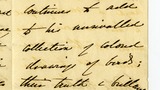 continues to add
to his unrivalled
collection of colored
drawings of birds;
their build & brillian